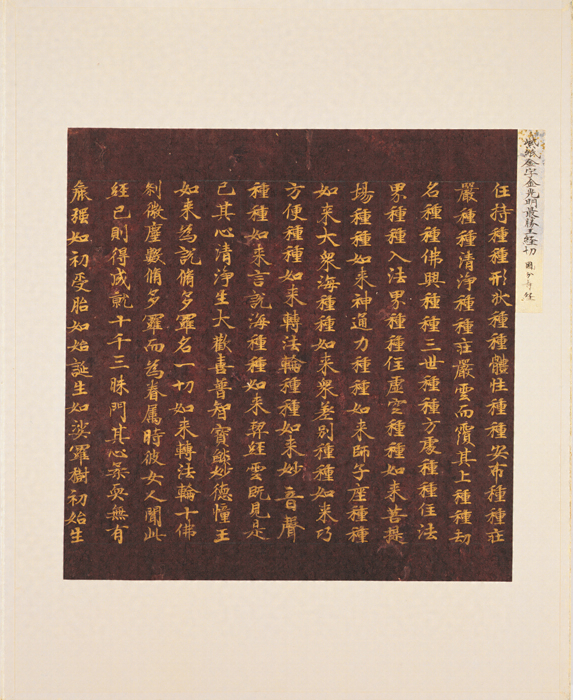 紙金字金光明最勝王経切 国分寺経
住持種種形狀種種體性種種安布種種莊
嚴種種清淨種種莊嚴雲而覆其上種種劫
名種種佛興種種三世種種方處種種住法
界種種入法界種種住虛空種種如来菩提
場種種如来神通力種種如来師子座種種
如来大衆海種種如来衆差別種種如来巧
方便種種如来轉法輪種種如来妙音聲
種種如来言說海種種如来契經雲既見是
已其心清淨生大歡喜普智寶燄妙德幢王
如来為說脩多羅名一切如来轉法輪十佛
剎微塵數脩多羅而為眷屬時彼女人聞此
經已則得成就十千三昧門其心柔耎無有
麁强如初受胎如始誕生如娑羅樹初始生